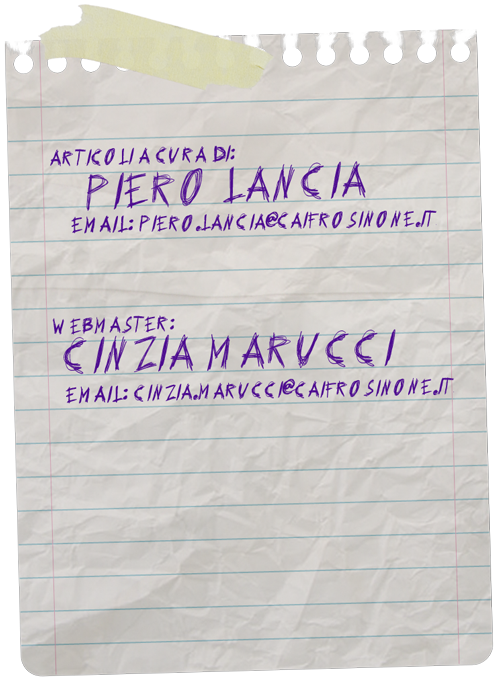 ARTICOLI A CURA DI:
PIERO LANCIA
EMAIL: PIERO.LANCIA@CAIFROSINONE.IT
WEBMASTER:
CINZIA MARUCCI
EMAIL: CINZIA.MARUCCI@CAIFROSINONE.IT